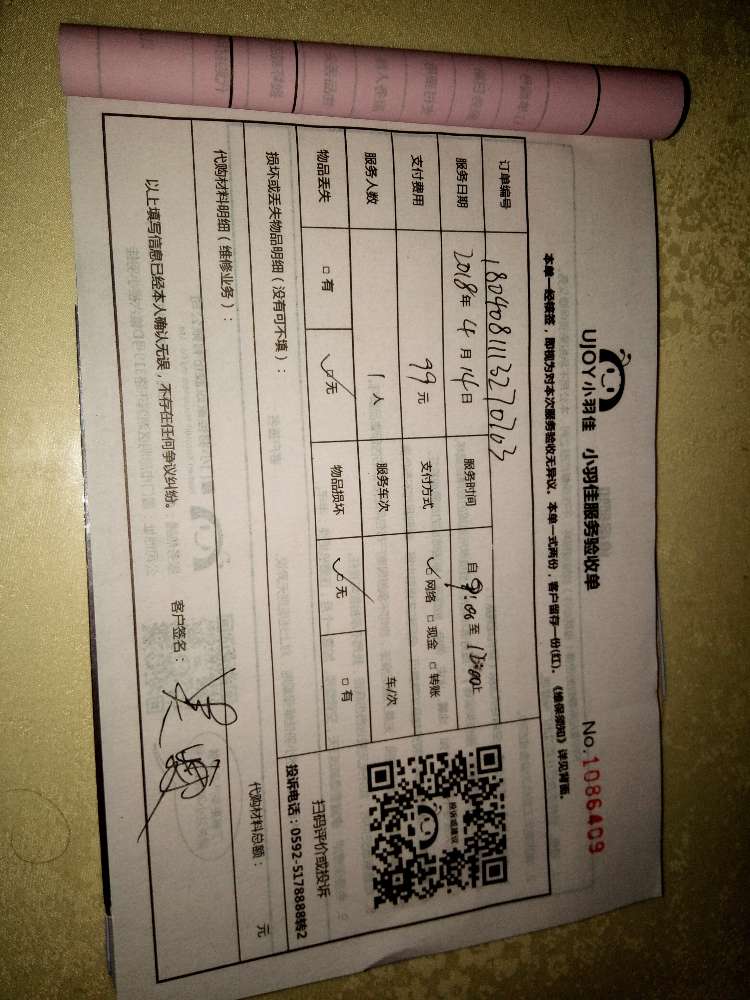 UJOY小羽佳 小羽佳服务验收单 No.1086409
本单一经核签，即视为对本次服务验收无异议。本单一式两份，客户留存一份(红)。《维保须知》详见背面。
订单编号 1804081113270763
服务日期 2018年 4 月 14日 服务时间 自 9:00 至 12:00止
支付费用 99 元 支付方式 ☑网络 □现金 □转账
服务人数 1 人 服务车次 车/次
物品丢失 □有 ☑无 物品损坏 ☑无 □有
投诉或建议
扫码评价或投诉
投诉电话：0592-5178888转2
损坏或丢失物品明细（没有可不填）：
代购材料明细（维修业务）： 代购材料总额： 元
以上填写信息已经本人确认无误，不存在任何争议纠纷。 客户签名：